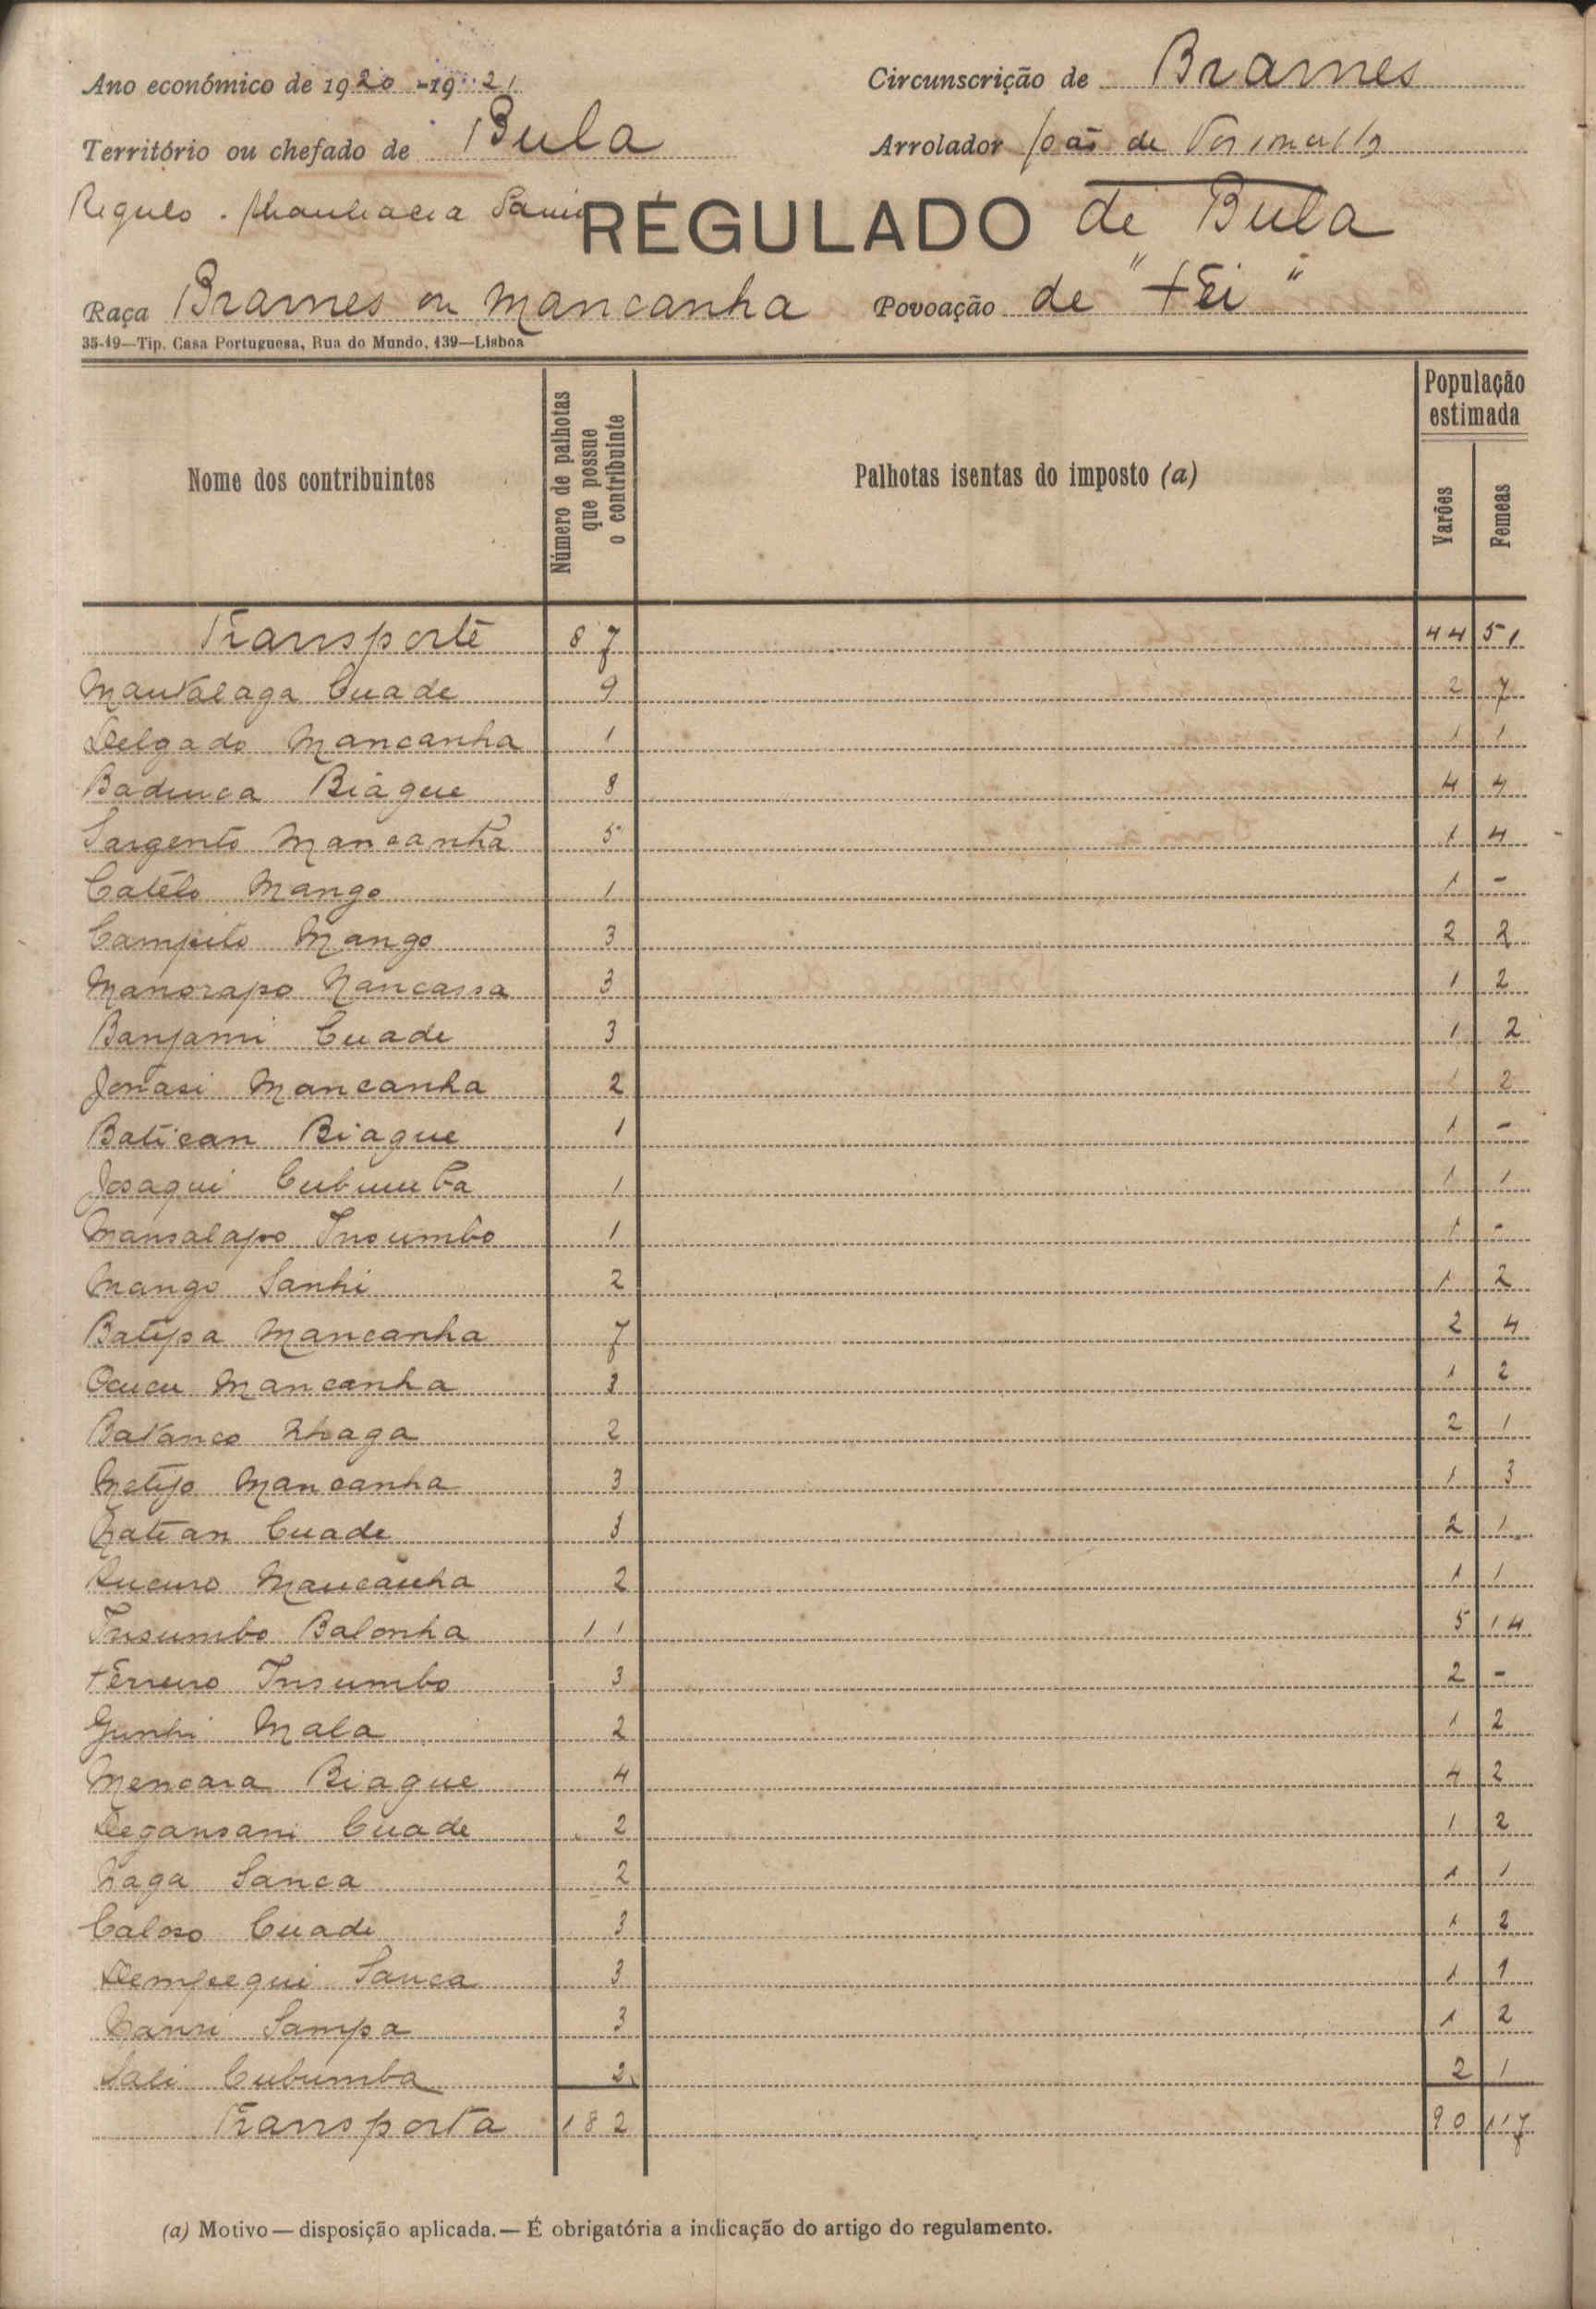 Ano económico de 1920-1921 Circunscrição de Brames
Território ou chefado de Bula Arrolador João de
Regulo. RÉGULADO de Bula
Raça Brames ou Mancanha Povoação de "Fei"
35-19—Tip. Casa Portuguesa, Rua do Mundo, 139—Lisboa
Nome dos contribuintes Número de palhotas que possue o contribuinte Palhotas isentas do imposto (a) População estimada Varões Femeas
Transporte 87 44 51
Cuade 9 2 7
Delgado Mancanha 1 1 1
Badinca Biágue 8 4 4
Sargento Mancanha 5 1 4
Catélo Mango 1 1 -
Campelo Mango 3 2 2
Manorapo Nancassa 3 1 2
Banjami Cuade 3 1 2
Jonasi Mancanha 2 1 2
Batican Biague 1 1 -
Josaqui Cubumba 1 1 1
Mansalapo Insumbo 1 1 -
Mango Sanhi 2 1 2
Batipa Mancanha 7 2 4
Ocucu Mancanha 3 1 2
Batanco Nhaga 2 2 1
Metijo Mancanha 3 1 3
Natean Cuade 3 2 1
Mancanha 2 1 1
Insumbo Balonha 11 5 14
Ferreiro Insumbo 3 2 -
Gunhi Mala 2 1 2
Mencara Biague 4 4 2
Degansani Cuade 2 1 2
Naga Sanca 2 1 1
Caloso Cuade 3 1 2
Dempequi Sanca 3 1 1
Sampa 3 1 2
Sali Cubumba 2 2 1
Transporta 182 90 117
(a) Motivo — disposição aplicada. — É obrigatória a indicação do artigo do regulamento.